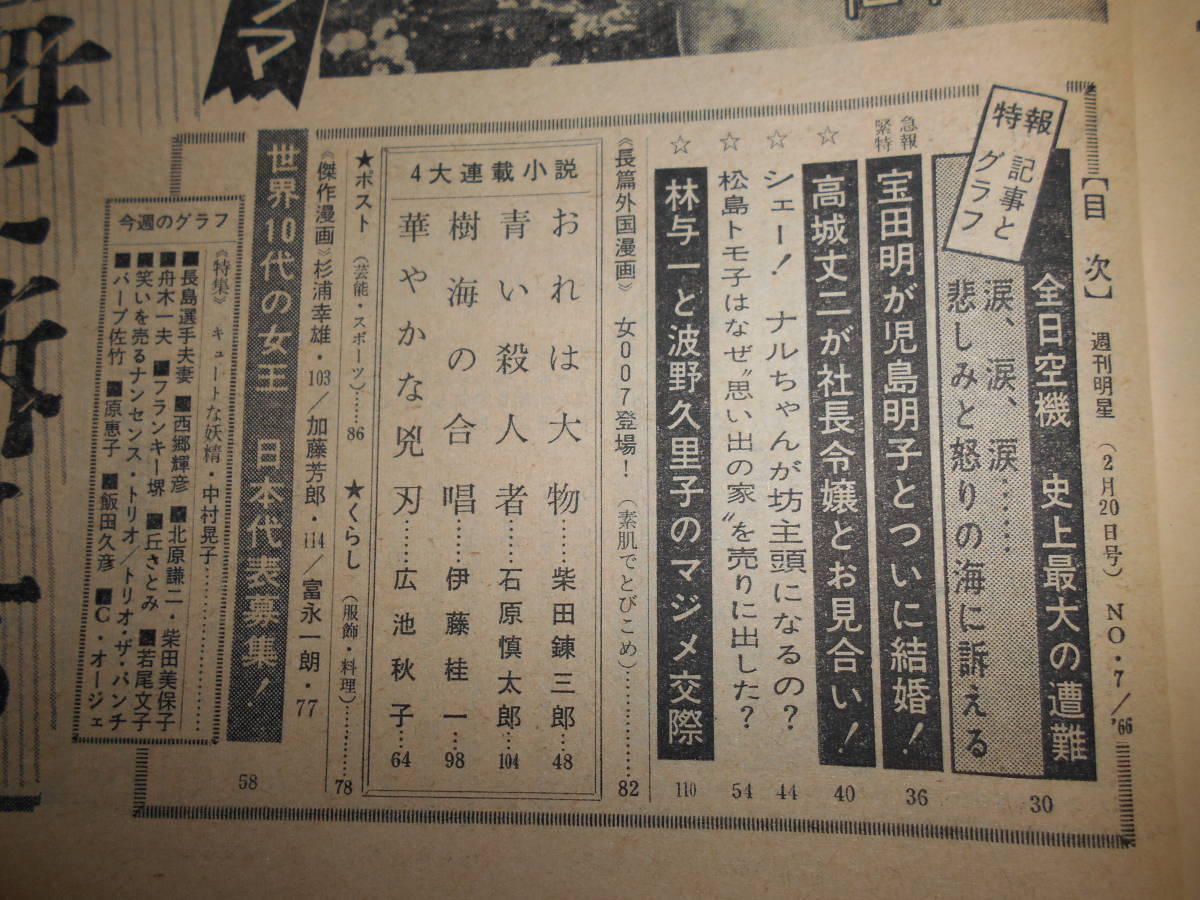 【目次】 週刊明星 (2月20日号) NO・7/'66
特報 記事とグラフ
全日空機 史上最大の遭難
30
涙、涙、涙……
悲しみと怒りの海に訴える
緊急特報
宝田明が児島明子とついに結婚!
36
☆ 高城丈二が社長令嬢とお見合い!
40
☆ シェー! ナルちゃんが坊主頭になるの?
44
☆ 松島トモ子はなぜ“思い出の家”を売りに出した?
54
☆ 林与一と波野久里子のマジメ交際
110
《長篇外国漫画》 女007登場! (素肌でとびこめ)………82
4大連載小説
おれは大物……柴田錬三郎…48
青い殺人者……石原慎太郎…104
樹海の合唱……伊藤桂一…98
華やかな兇刃……広池秋子…64
★ポスト (芸能・スポーツ)……86 ★くらし (服飾・料理)………78
《傑作漫画》杉浦幸雄・103/加藤芳郎・114/富永一朗・77
世界10代の女王 日本代表募集!
58
今週のグラフ
《特集》 キュートな妖精・中村晃子
■長島選手夫妻 ■西郷輝彦 ■北原謙二・柴田美保子
■舟木一夫 ■フランキー堺 ■丘さとみ ■若尾文子
■笑いを売るナンセンス・トリオ/トリオ・ザ・パンチ
■バーブ佐竹 ■原恵子 ■飯田久彦 ■C・オージェ